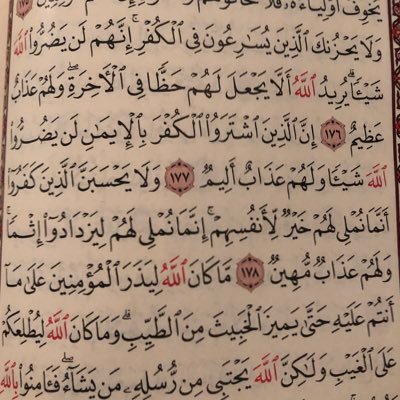 يُخَوِّفُ أَوْلِيَاءَهُۥ فَلَا تَخَافُوهُمْ ١٧٥
وَلَا يَحْزُنكَ ٱلَّذِينَ يُسَٰرِعُونَ فِى ٱلْكُفْرِ ۚ إِنَّهُمْ لَن يَضُرُّوا۟ ٱللَّهَ
شَيْـًٔا ۗ يُرِيدُ ٱللَّهُ أَلَّا يَجْعَلَ لَهُمْ حَظًّا فِى ٱلْـَٔاخِرَةِ ۖ وَلَهُمْ عَذَابٌ
عَظِيمٌ ١٧٦ إِنَّ ٱلَّذِينَ ٱشْتَرَوُا۟ ٱلْكُفْرَ بِٱلْإِيمَٰنِ لَن يَضُرُّوا۟
ٱللَّهَ شَيْـًٔا وَلَهُمْ عَذَابٌ أَلِيمٌ ١٧٧ وَلَا يَحْسَبَنَّ ٱلَّذِينَ كَفَرُوٓا۟
أَنَّمَا نُمْلِى لَهُمْ خَيْرٌ لِّأَنفُسِهِمْ ۚ إِنَّمَا نُمْلِى لَهُمْ لِيَزْدَادُوٓا۟ إِثْمًا ۚ
وَلَهُمْ عَذَابٌ مُّهِينٌ ١٧٨ مَّا كَانَ ٱللَّهُ لِيَذَرَ ٱلْمُؤْمِنِينَ عَلَىٰ مَآ
أَنتُمْ عَلَيْهِ حَتَّىٰ يَمِيزَ ٱلْخَبِيثَ مِنَ ٱلطَّيِّبِ ۗ وَمَا كَانَ ٱللَّهُ لِيُطْلِعَكُمْ
عَلَى ٱلْغَيْبِ وَلَٰكِنَّ ٱللَّهَ يَجْتَبِى مِن رُّسُلِهِۦ مَن يَشَآءُ ۖ فَـَٔامِنُوا۟ بِٱللَّهِ